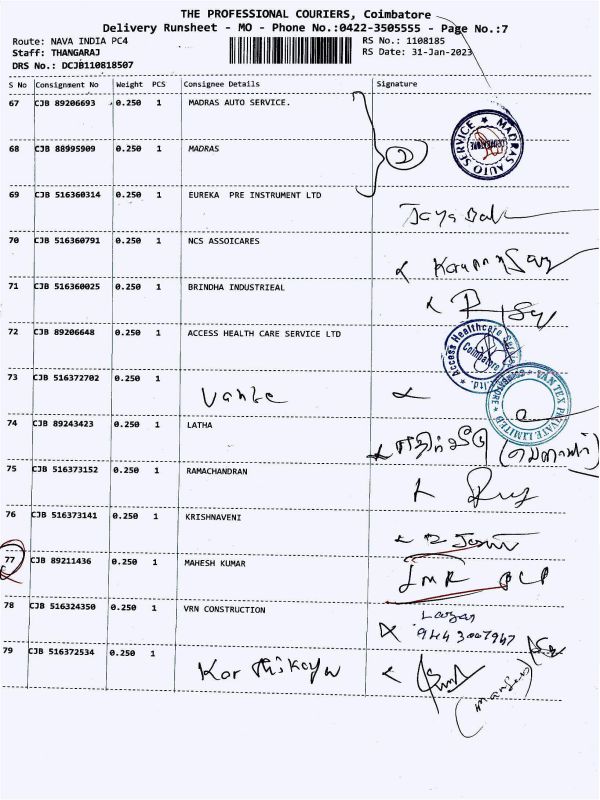 THE PROFESSIONAL COURIERS, Coimbatore
Delivery Runsheet - MO - Phone No.:0422-3505555 - Page No.:7
Route: NAVA INDIA PC4
RS No.: 1108185
Staff: THANGARAJ
RS Date: 31-Jan-2023
DRS No.: DCJB110818507
S No Consignment No Weight PCS Consignee Details Signature
67 CJB 89206693 0.250 1 MADRAS AUTO SERVICE.
68 CJB 88995909 0.250 1 MADRAS
MADRAS AUTO SERVICE
COIMBATORE
69 CJB 516360314 0.250 1 EUREKA PRE INSTRUMENT LTD
70 CJB 516360791 0.250 1 NCS ASSOICARES
71 CJB 516360025 0.250 1 BRINDHA INDUSTRIEAL
72 CJB 89206648 0.250 1 ACCESS HEALTH CARE SERVICE LTD
Access Healthcare Service Ltd.
Coimbatore
73 CJB 516372702 0.250 1
VAN TEX PRIVATE LIMITED
COIMBATORE
74 CJB 89243423 0.250 1 LATHA
75 CJB 516373152 0.250 1 RAMACHANDRAN
76 CJB 516373141 0.250 1 KRISHNAVENI
77 CJB 89211436 0.250 1 MAHESH KUMAR
78 CJB 516324350 0.250 1 VRN CONSTRUCTION
79 CJB 516372534 0.250 1